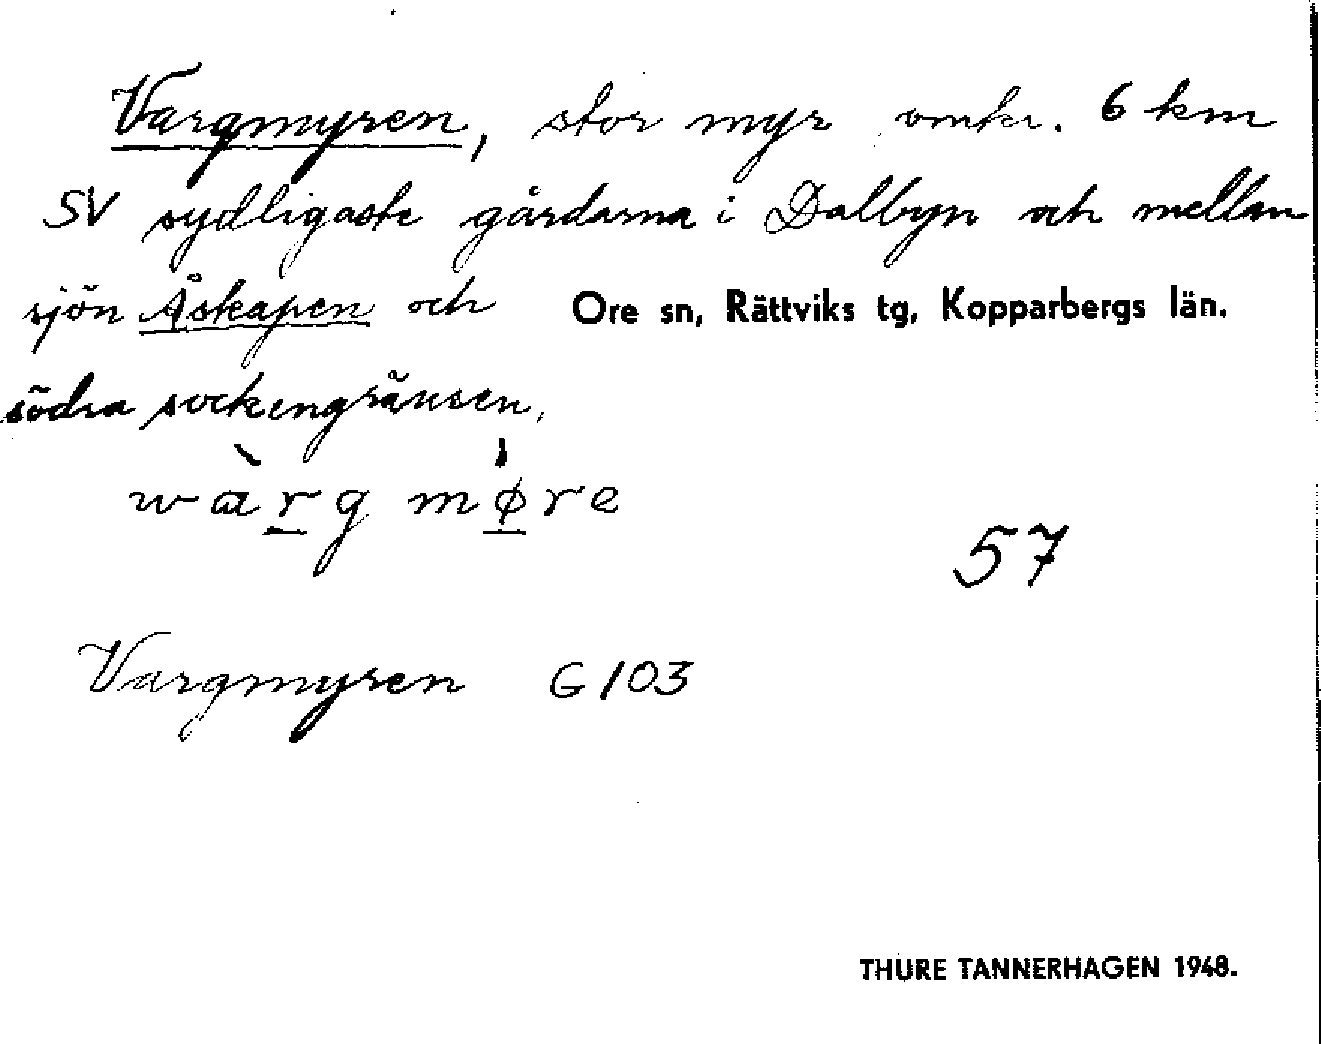 Vargmyren, stor myr omkr. 6 km
SV sydligaste gårdarna i Dalbyn och mellan
sjön Åskapen och
Ore sn, Rättviks tg, Kopparbergs län.
södra sockengränsen.
wàrg møre
57
Vargmyren G 103
THURE TANNERHAGEN 1948.